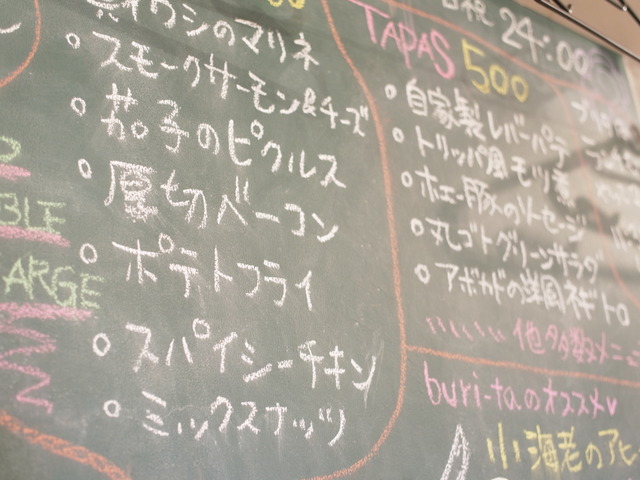 イワシのマリネ
スモークサーモン&チーズ
茄子のピクルス
厚切ベーコン
ポテトフライ
スパイシーチキン
ミックスナッツ
BLE
ARGE
日祝 24:00
TAPAS 500
自家製レバーパテ
トリッパ風モツ煮
ホエー豚のソセージ
丸ゴトグリーンサラダ
アボカドの洋風ネギトロ
他多数メニュ
buri-taのオススメ♥
小海老のアヒ